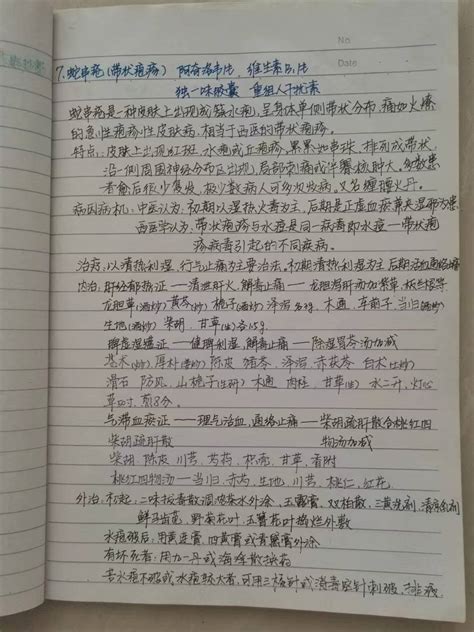 No
Date
7. 蛇串疮(带状疱疹) 阿奇洛韦片、维生素B1片
独一味胶囊 重组人干扰素
蛇串疮是一种皮肤上出现成簇水疱,呈身体单侧带状分布,痛如火燎
的急性疱疹性皮肤病,相当于西医的带状疱疹.
特点:皮肤上出现红斑、水疱或丘疱疹,累累如串珠,排列成带状,
沿一侧周围神经分布区出现,局部刺痛或伴臖核肿大,多数患
者愈后很少复发,极少数病人可多次发病,又名缠腰火丹.
病因病机:中医认为:初期以湿热火毒为主,后期是正虚血瘀兼夹湿邪为患
西医学认为:带状疱疹与水痘是同一病毒即水痘一带状疱
疹病毒引起的不同疾病.
治疗,以清热利湿,行气止痛为主要治法,初期清热利湿为主 后期活血通络
内治:肝经郁热证——清泄肝火,解毒止痛——龙胆泻肝汤加紫草、板蓝根等
龙胆草(酒炒)黄芩(炒) 栀子(酒炒)泽泻 木通、车前子、当归(酒炒)
生地(酒炒) 柴胡、甘草(生)各15g.
脾虚湿蕴证——健脾利湿,解毒止痛——除湿胃苓汤加减
苍术(炒)厚朴(姜炒)陈皮 猪苓、泽泻、赤茯苓 白术(土炒)
滑石 防风、山栀子(生研)木通 肉桂、甘草(生) 水二升,灯心
草 煎8分.
气滞血瘀证——理气活血,通络止痛——柴胡疏肝散合桃红四
柴胡疏肝散 物汤加减
柴胡、陈皮 川芎、芍药、枳壳、甘草、香附
桃红四物汤——当归、赤芍、生地、川芎、桃仁、红花.
外治:初起:二味拔毒散调浓茶水外涂、玉露膏、双柏散、三黄洗剂、清凉乳剂
鲜马齿苋、野菊花叶 玉簪花叶捣烂外敷
水疱破后,用黄连膏、四黄膏或青黛膏外涂
有坏死者:用九一丹或海浮散换药
若水疱不破或水疱较大者,可用三棱针或消毒空针刺破,排液